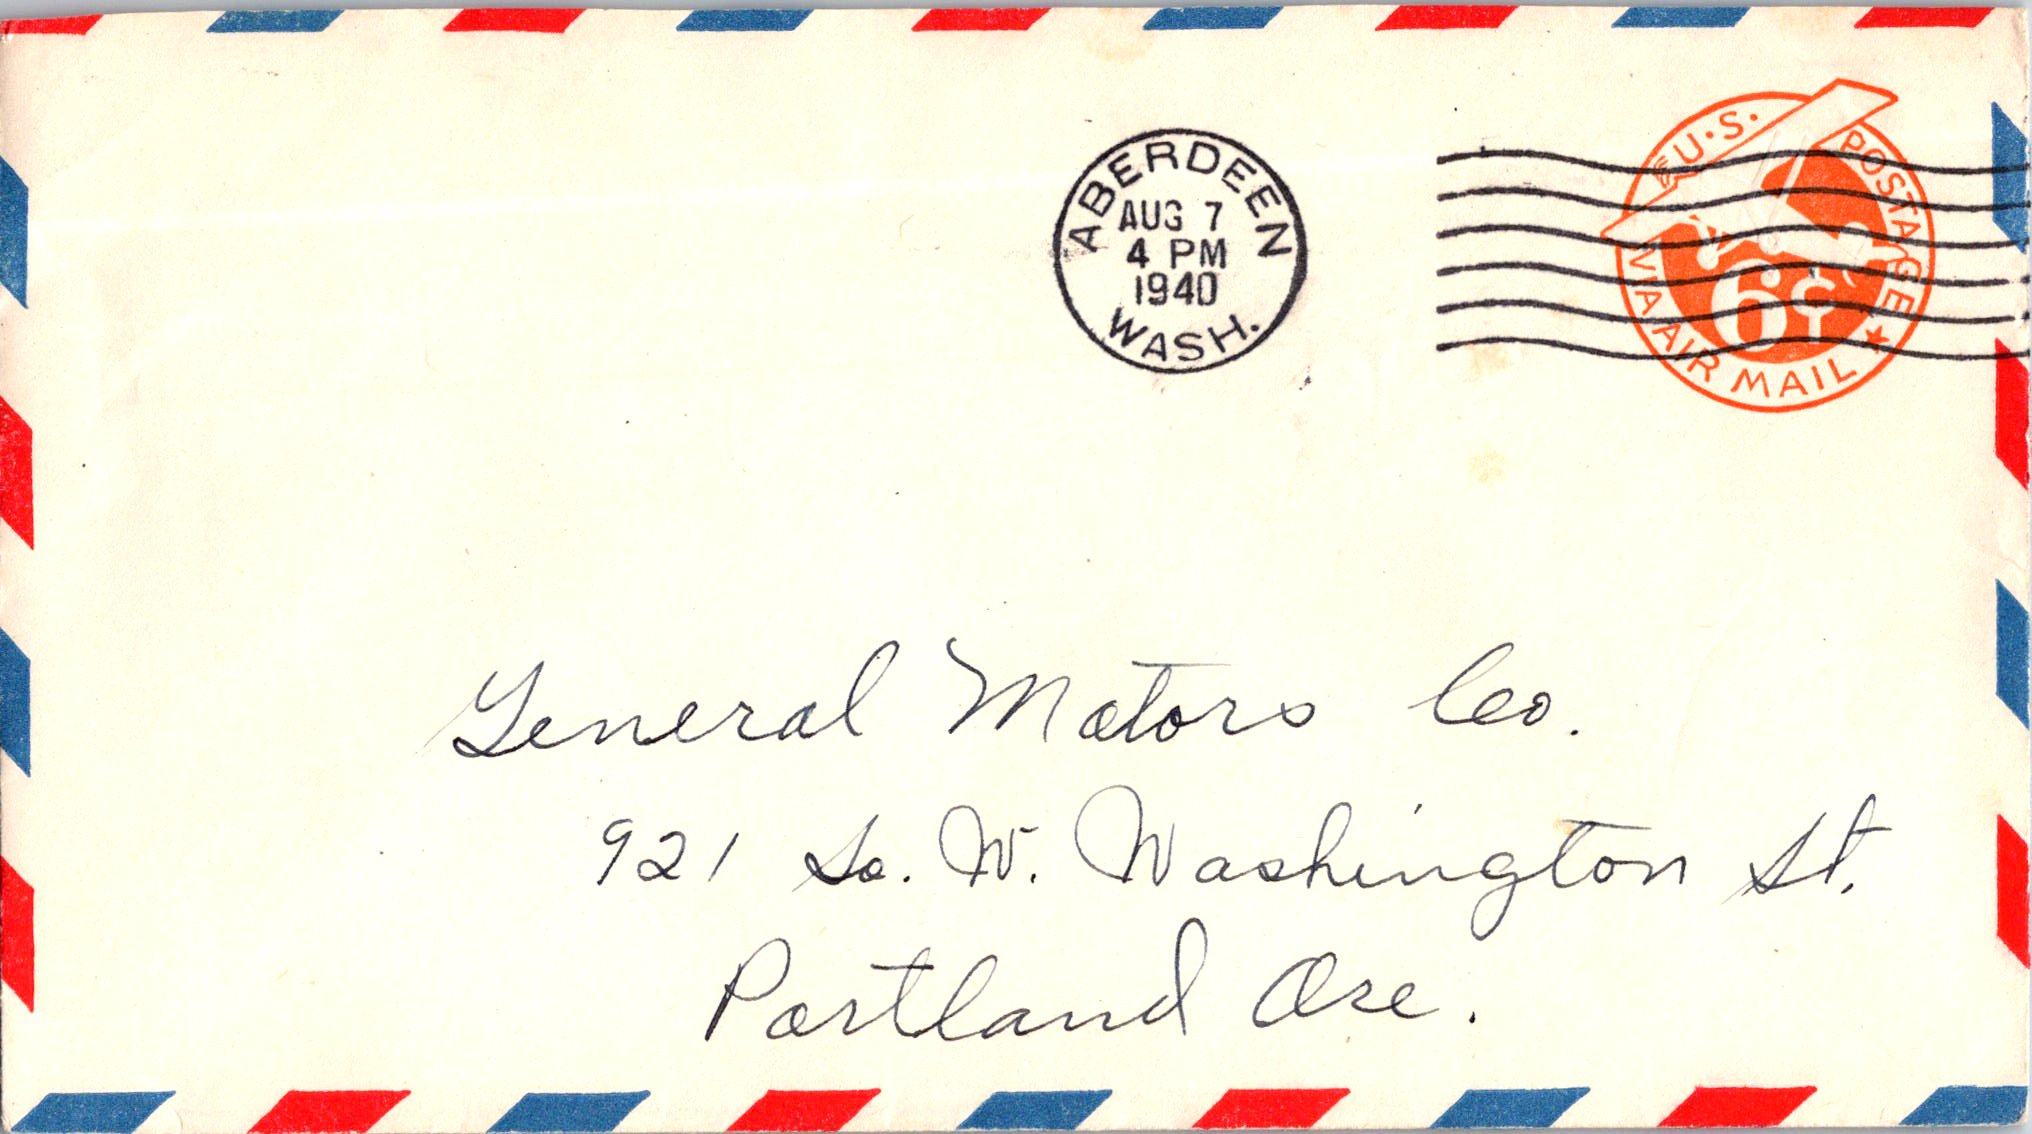 ABERDEEN
AUG 7
4 PM
1940
WASH.
U.S. POSTAGE
6¢
VIA AIR MAIL
General Motors Co.
921 So. W. Washington St.
Portland Ore.